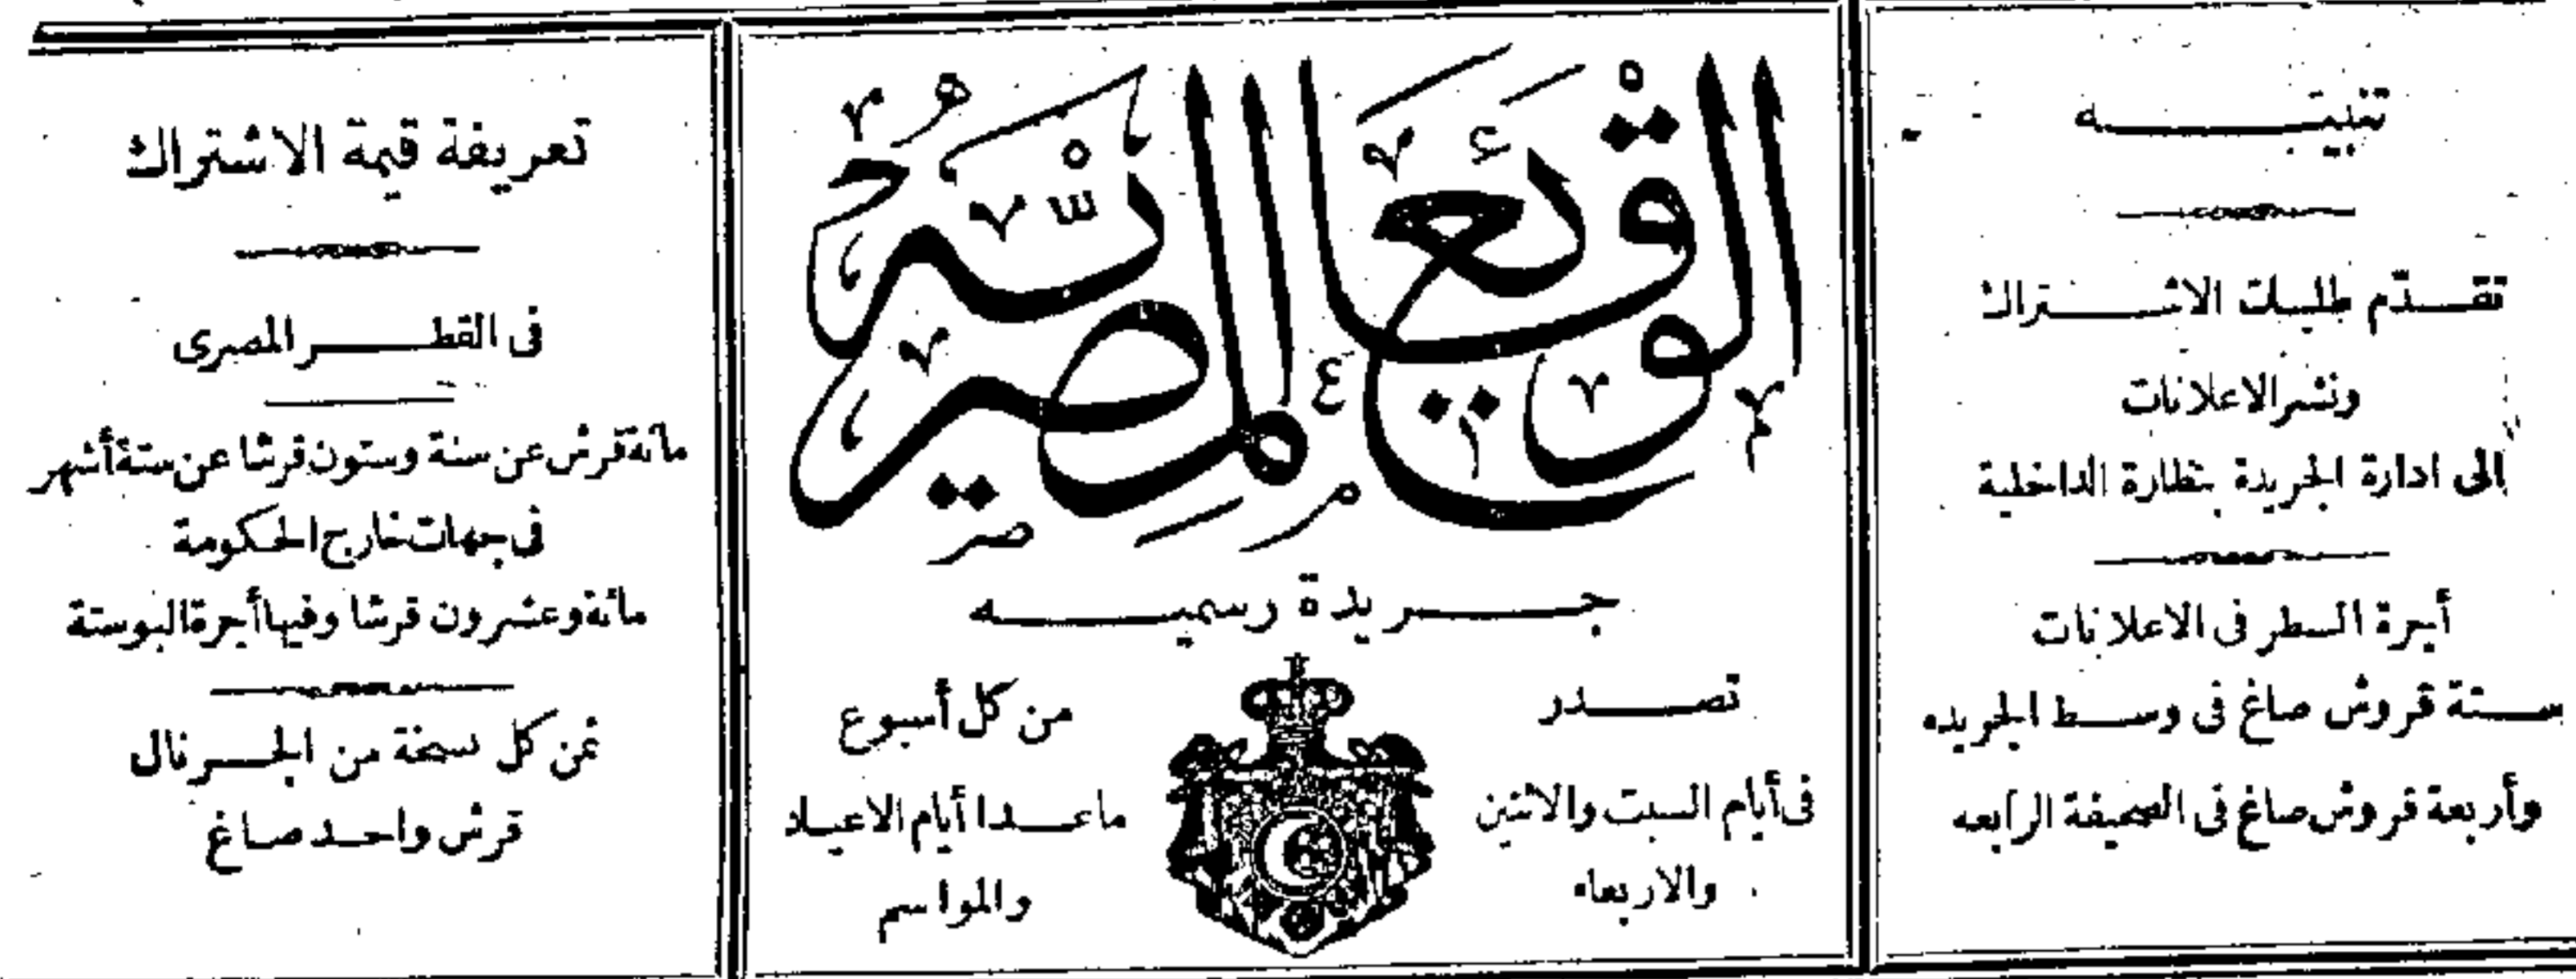 تنبيـــــه
تقـــدّم طلبات الاشـــتراك
ونشر الاعلانات
الى ادارة الجريدة بنظارة الداخلية
أجرة السطر فى الاعلانات
ســتة قروش صاغ فى وســط الجريده
وأربعة قروش صاغ فى الصحيفة الرابعه
الوقائع المصرية
جـــريدة رسميـــه
تصـــدر
من كل أسبوع
فى أيام السبت والاثنين
ماعــدا أيام الاعيـاد
والاربعاء
والمواسم
تعريفة قيمة الاشتراك
فى القطـــر المصرى
مائة قرش عن سنة وستون قرشا عن ستة أشهر
فى جهات خارج الحكومة
مائة وعشرون قرشا وفيها أجرة البوستة
ثمن كل نسخة من الجــرنال
قرش واحــد صـاغ